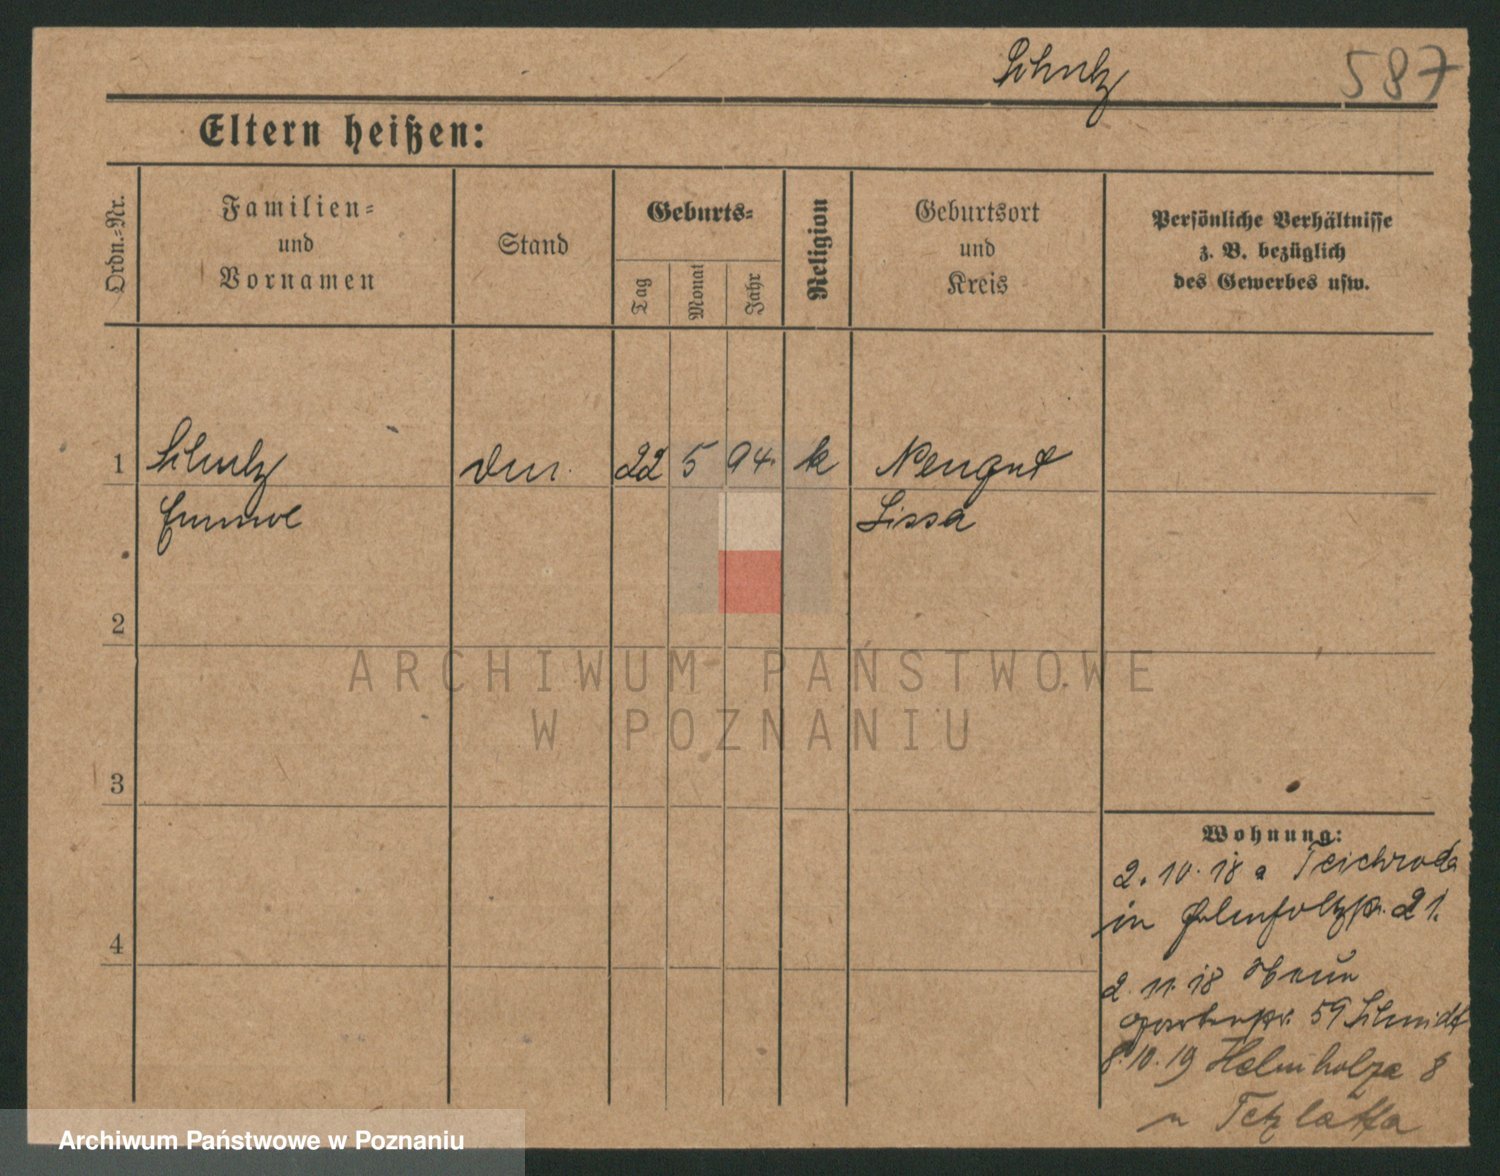 Schulz 587
Eltern heißen:
Ordn.-Nr.
Familien-
und
Vornamen
Stand
Geburts-
Tag
Monat
Jahr
Religion
Geburtsort
und
Kreis
Persönliche Verhältnisse
z. B. bezüglich
des Gewerbes usw.
1 Schulz 22 5 94. k Neugut
Emma Lissa
2
3
4
ARCHIWUM PAŃSTWOWE
W POZNANIU
Wohnung:
2. 10. 18 a Teichroda
in 21.
2. 11. 18
59 Schmidt
8. 10. 19 Helmholza 8
u Tetzlaffa
Archiwum Państwowe w Poznaniu